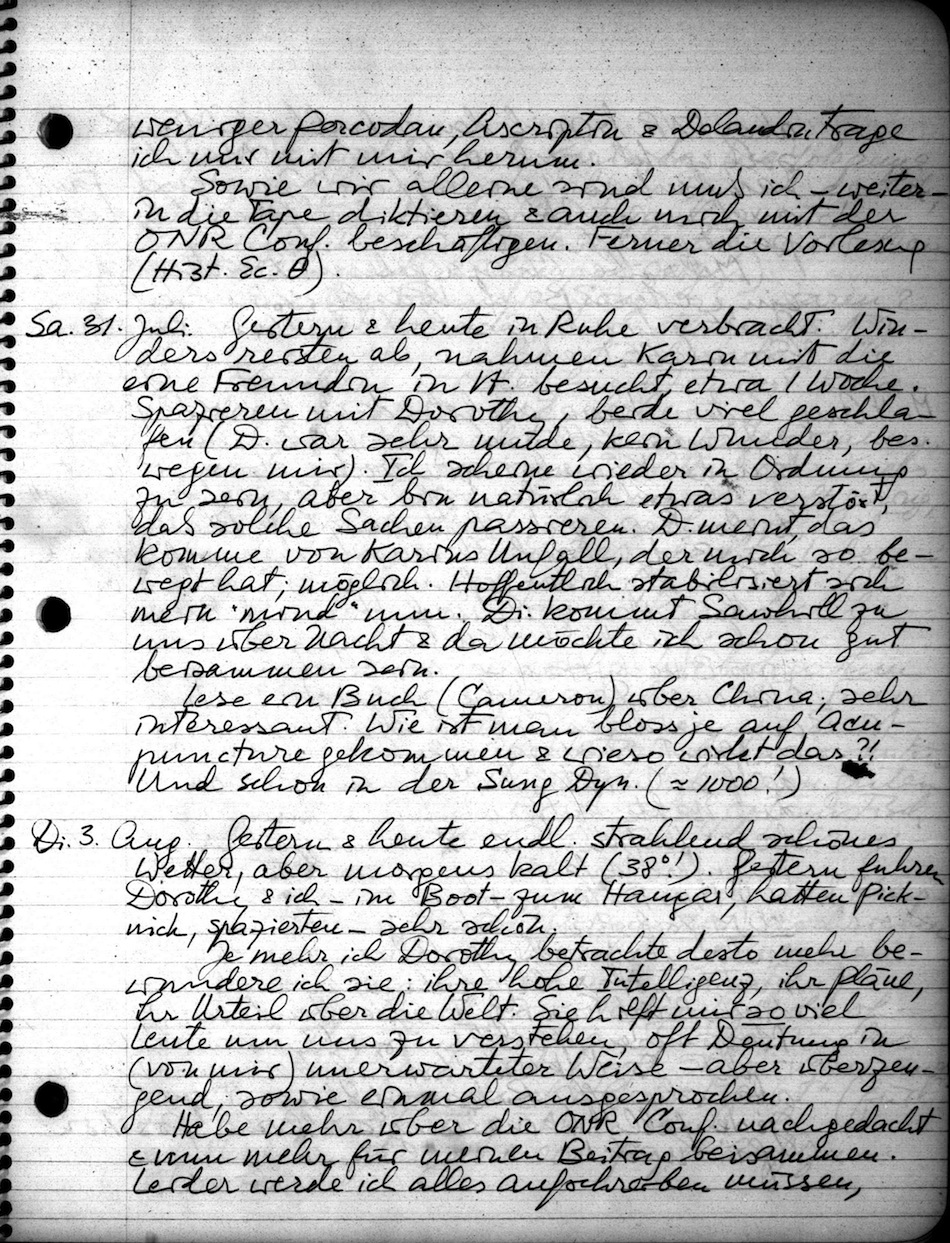 weniger Percodan, Ascriptin & Dolandin trage
ich mir mit mir herum.
Sowie wir alleine sind muß ich – weiter –
in die Tape diktieren & auch mich mit der
ONR Conf. beschäftigen. Ferner die Vorlesung
(Hist. Ec. θ).
Sa. 31. Juli. Gestern & heute in Ruhe verbracht. Win-
ders reisten ab, nahmen Karin mit die
eine Freundin in besucht, etwa 1 Woche.
Spazieren mit Dorothy, beide viel geschla-
fen (D. war sehr müde, kein Wunder, bes.
wegen mir). Ich scheine wieder in Ordnung
zu sein, aber bin natürlich etwas verstört,
daß solche Sachen passieren. D. meint, das
komme von Karins Unfall, der mich so be-
wegt hat; möglich. Hoffentlich stabilisiert sich
mein "mind" nun. Di. kommt Sawhill zu
uns über Nacht & da möchte ich schon gut
beisammen sein.
Lese ein Buch (Cameron) über China; sehr
interessant. Wie ist man bloss je auf Acu-
puncture gekommen & wieso wirkt das?!
Und schon in der Sung Dyn. (≈ 1000!)
Di. 3. Aug. Gestern & heute endl. strahlend schönes
Wetter, aber morgens kalt (38°!). Gestern fuhren
Dorothy & ich – im Boot – zum Hangar, hatten Pick-
nick, spazierten – sehr schön.
Je mehr ich Dorothy betrachte desto mehr be-
wundere ich sie: ihre hohe Intelligenz, ihr Pläne,
ihr Urteil über die Welt. Sie hilft mir so viel
Leute um uns zu verstehen, oft Deutung in
(von mir) unerwarteter Weise – aber überzeu-
gend, sowie einmal ausgesprochen.
Habe mehr über die ONR Conf. nachgedacht
& nun mehr für meinen Beitrag beisammen.
Leider werde ich alles aufschreiben müssen,